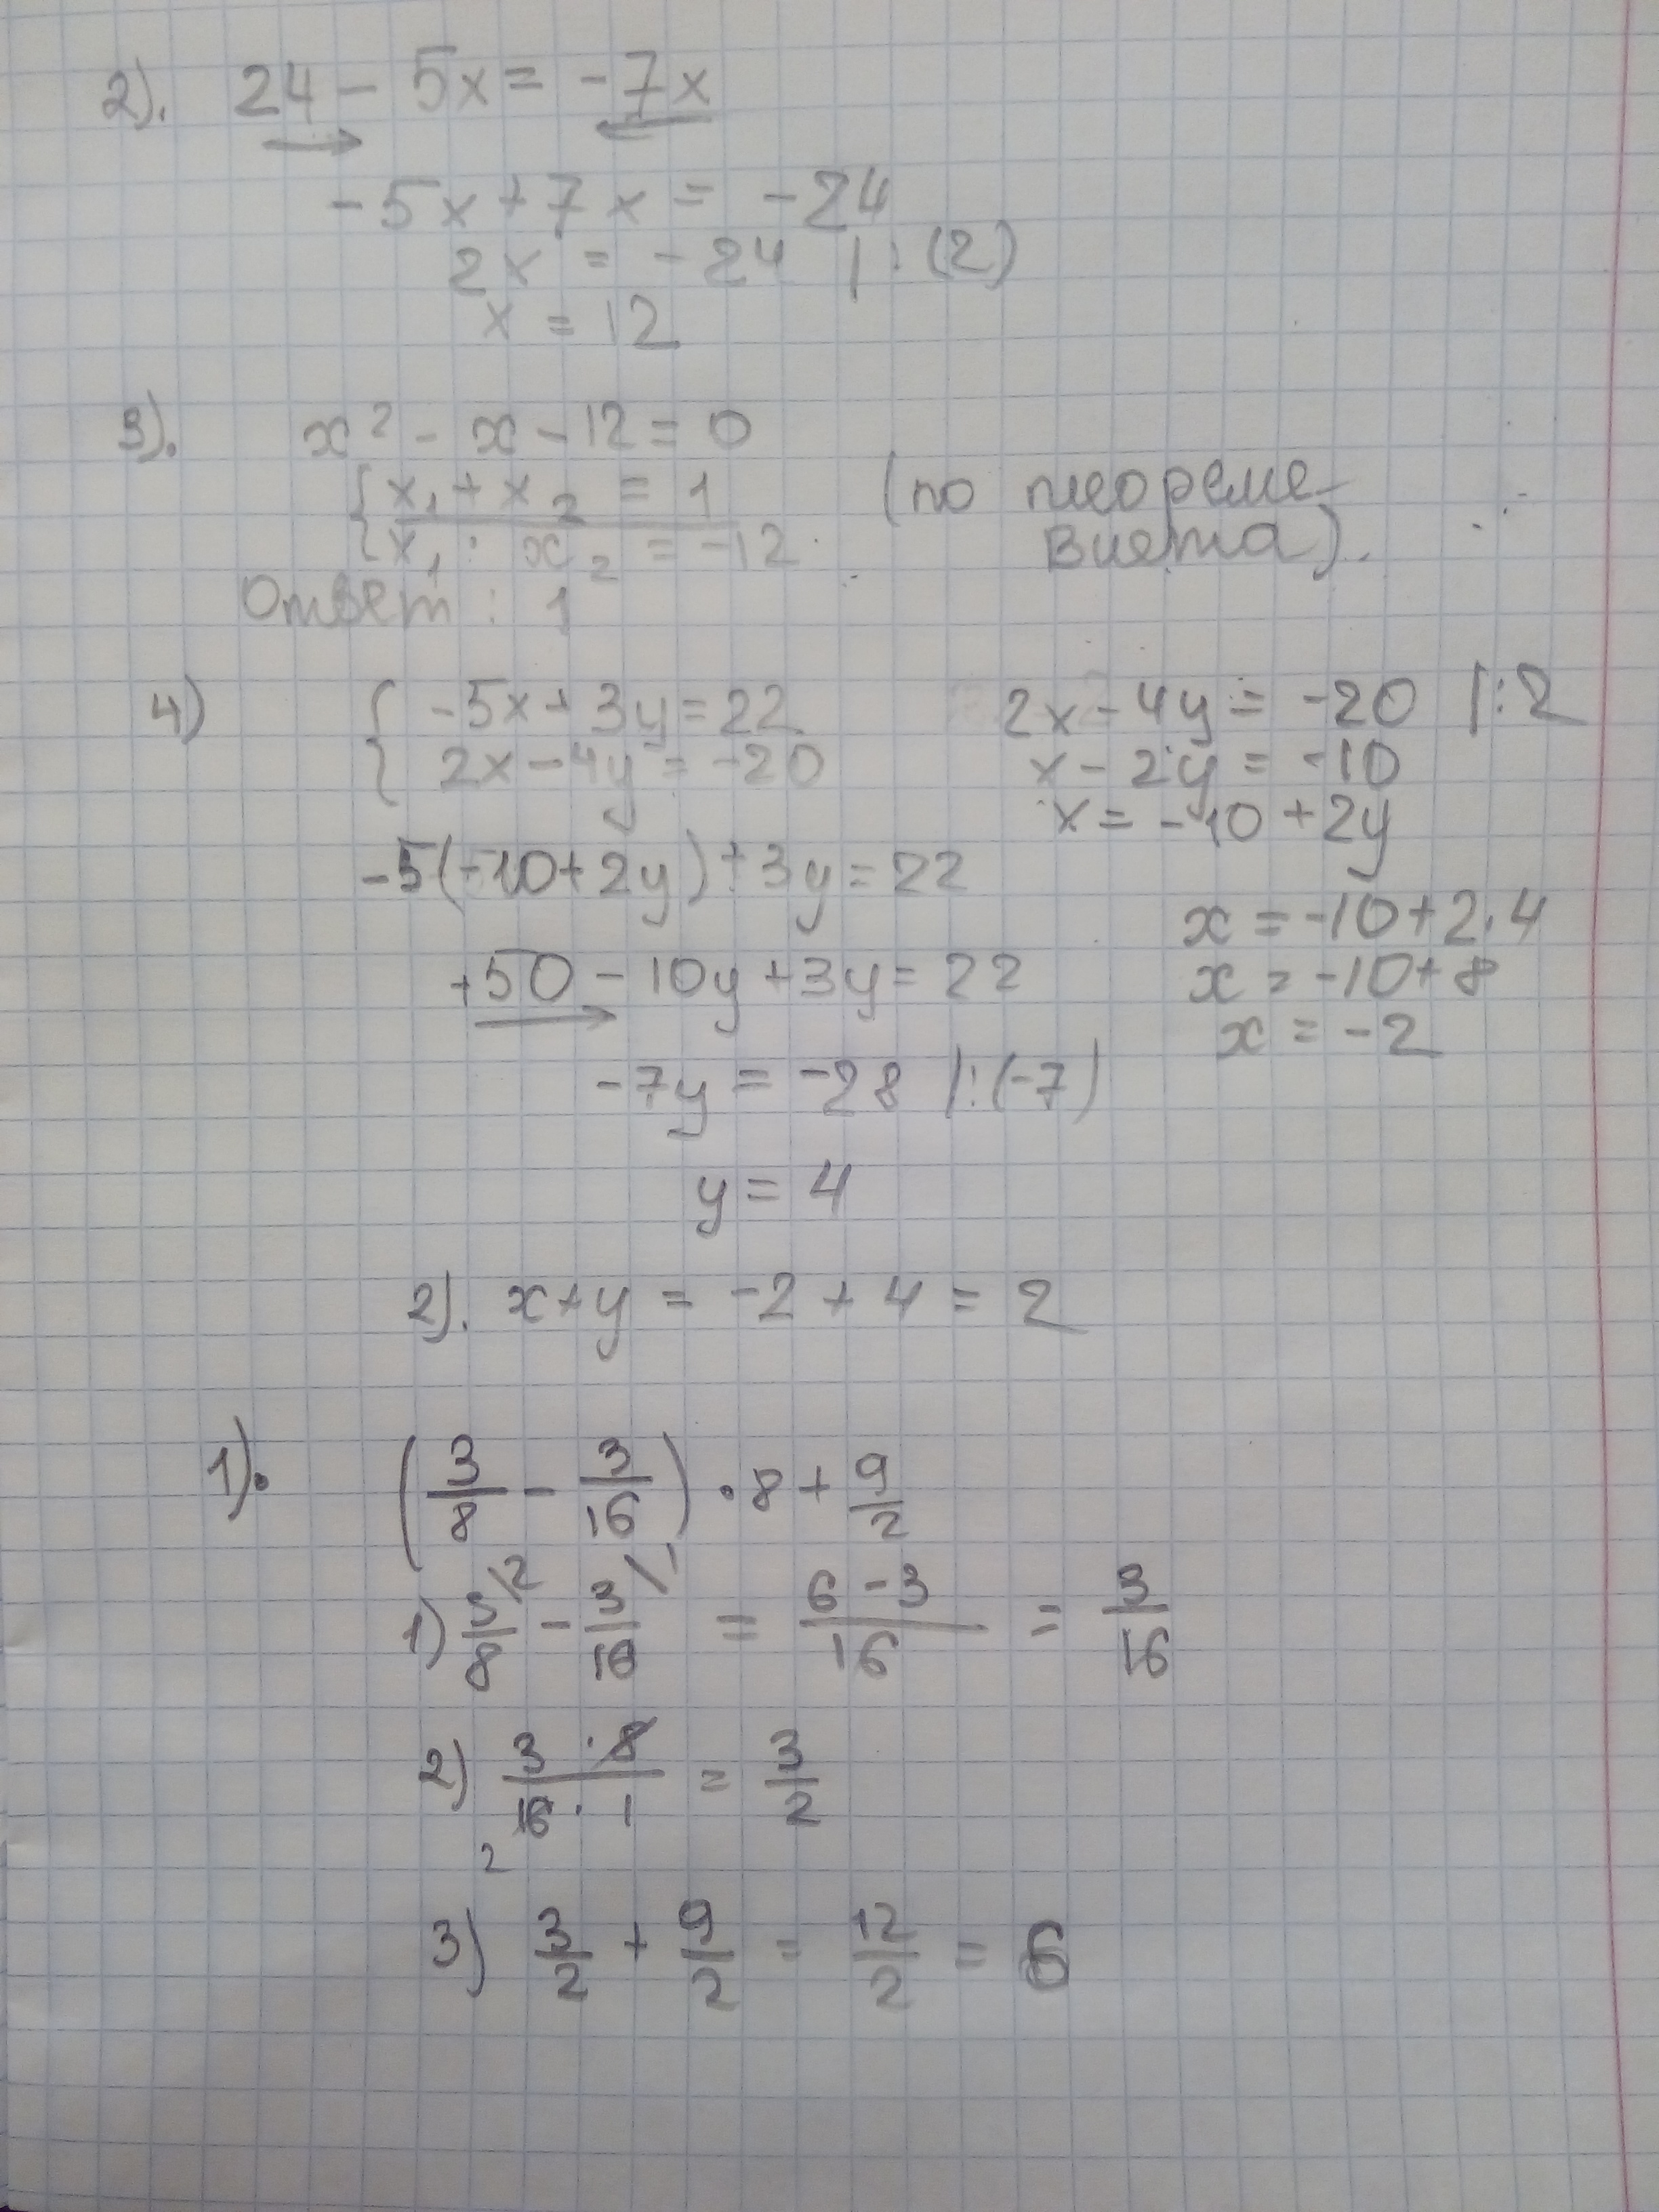 2). 24 - 5x = -7x
-5x + 7x = -24
2x = -24 | : (2)
x = 12
3). x² - x - 12 = 0
{ x₁ + x₂ = 1 (по теореме
{ x₁ · x₂ = -12 Виета).
Ответ : 1
4) { -5x + 3y = 22
{ 2x - 4y = -20
2x - 4y = -20 | : 2
x - 2y = -10
x = -10 + 2y
-5(-10 + 2y) + 3y = 22
+50 - 10y + 3y = 22
-7y = -28 | : (-7)
y = 4
x = -10 + 2 · 4
x = -10 + 8
x = -2
2). x + y = -2 + 4 = 2
1). (3/8 - 3/16) · 8 + 9/2
1) 3/8 /2 - 3/16 /1 = (6 - 3)/16 = 3/16
2) (3 · 8)/(16 · 1) = 3/2
2
3) 3/2 + 9/2 = 12/2 = 6